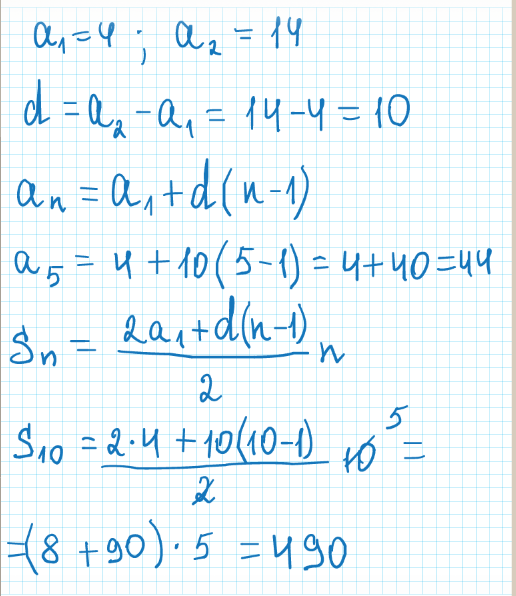 a₁=4 ; a₂ = 14
d = a₂ - a₁ = 14-4 = 10
aₙ = a₁ + d(n-1)
a₅ = 4 + 10(5-1) = 4+40=44
Sₙ = (2a₁+d(n-1))/2 n
S₁₀ = (2·4 + 10(10-1))/2 10 5 =
=(8 + 90) · 5 = 490